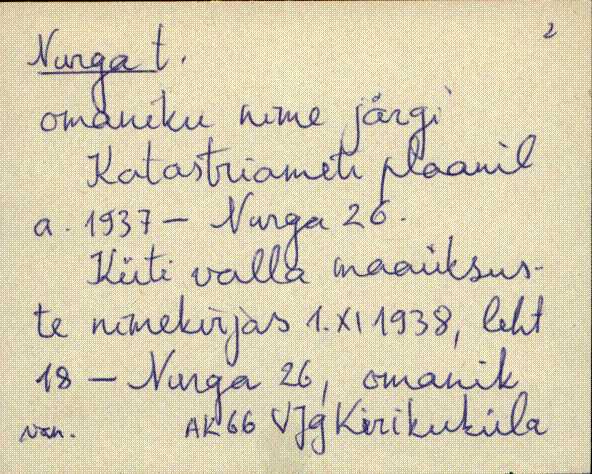 2
Nurga t.
omaniku nime järgi
Katastriameti plaanil
a. 1937 – Nurga 26.
Küti valla maaüksus-
te nimekirjas 1. XI 1938, leht
18 – Nurga 26, omanik
AK 66 VJg Kirikuküla